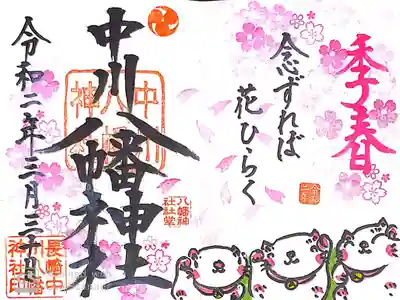 季春
念ずれば
花ひらく
中川八幡神社
令和二年三月三十日
中川八幡神社
長崎中
川八幡
神社印